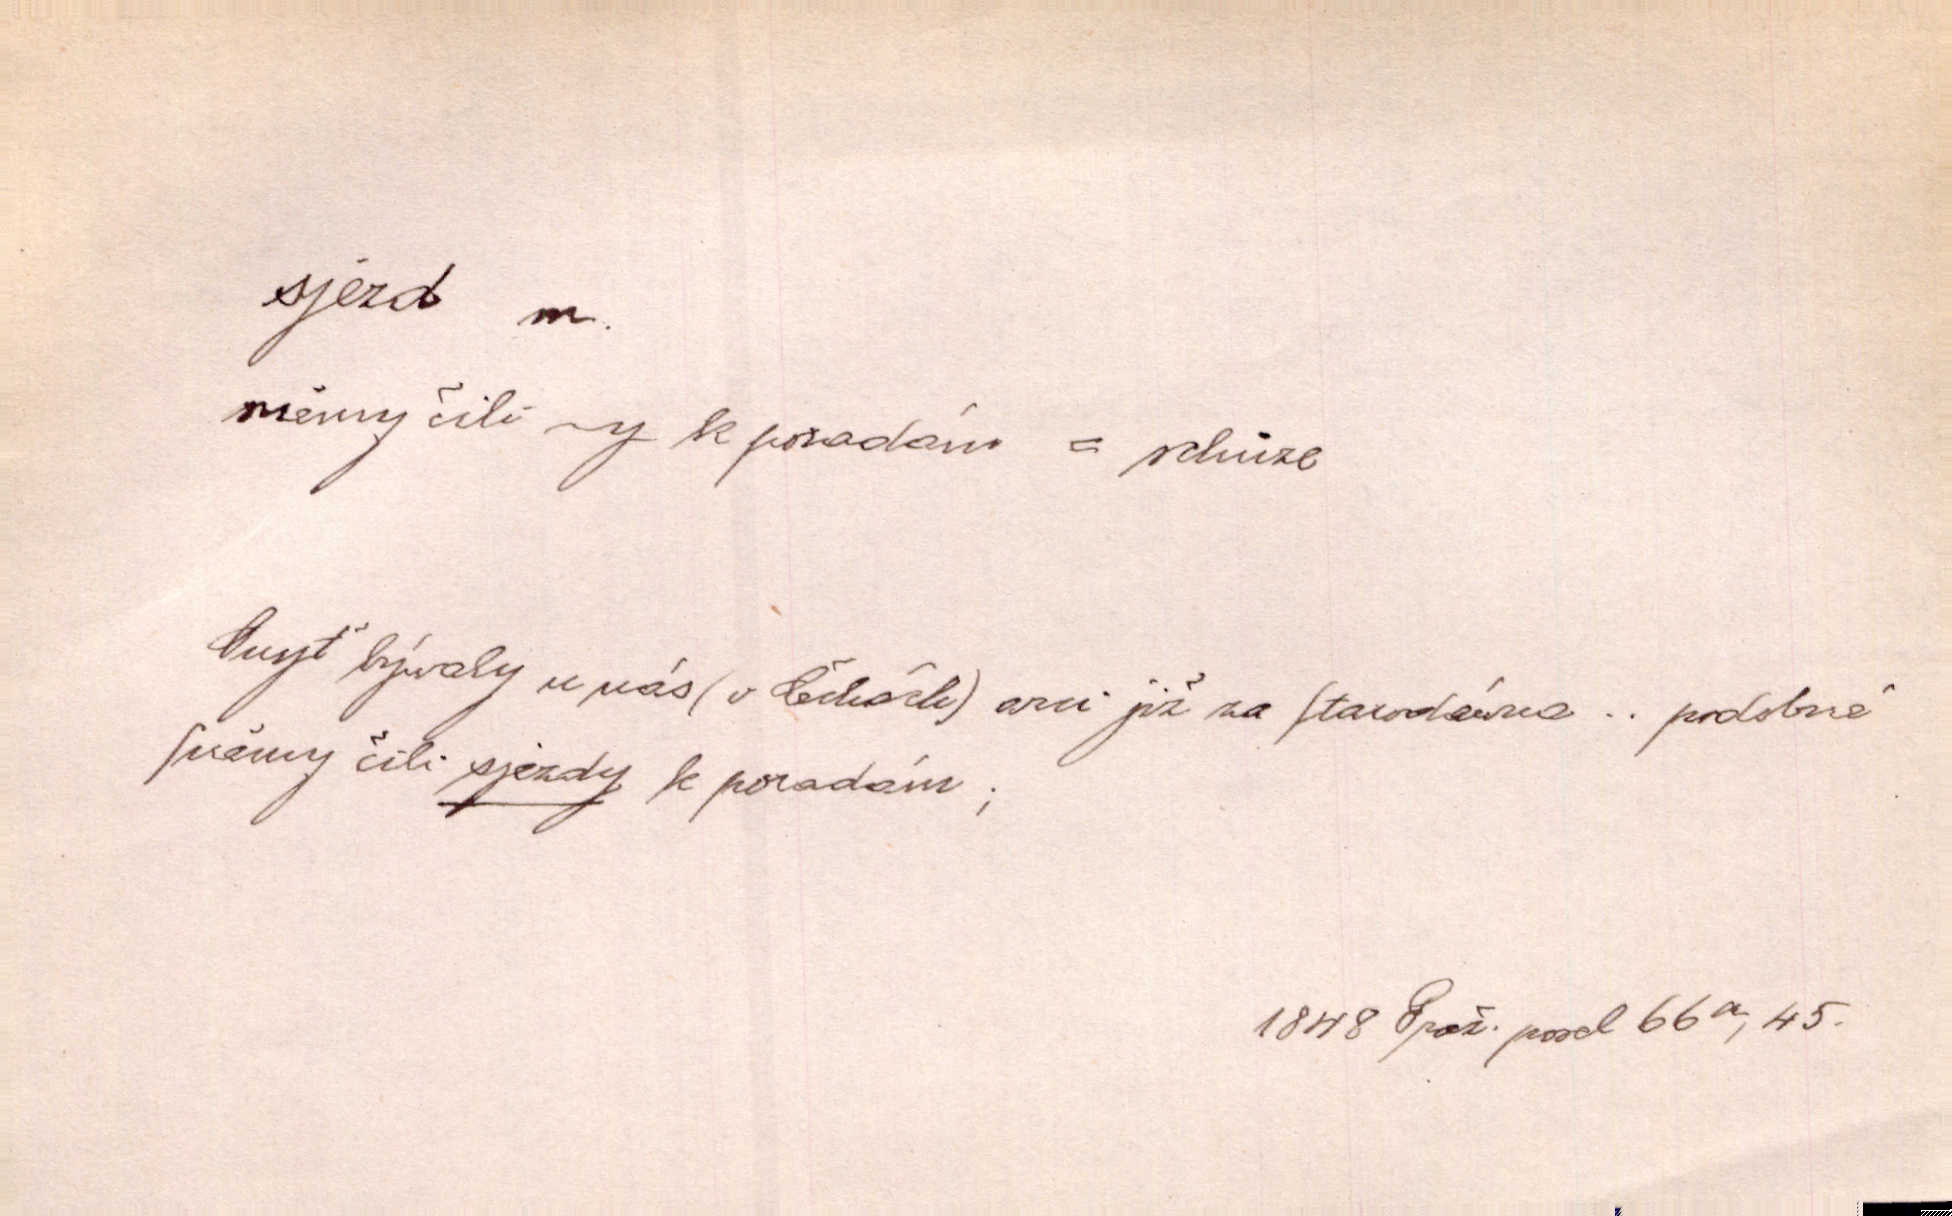 sjezd m.
sněmy čili ~y k poradám = schůze
bývaly u nás (v Čechách) arci již za starodávna .. podobné
sněmy čili sjezdy k poradám ;
1848 Praž. posel 66a, 45.